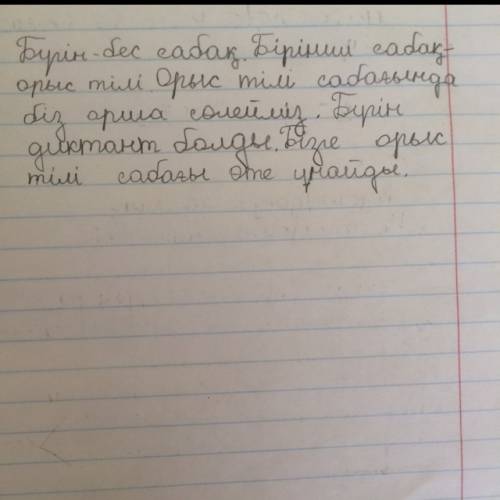 Бүгін-бес сабақ. Бірінші сабақ-
орыс тілі. Орыс тілі сабағында
біз орша сөлейміз. Бүгін
диктант болды. Бізге орыс
тілі сабағы өте ұнайды.